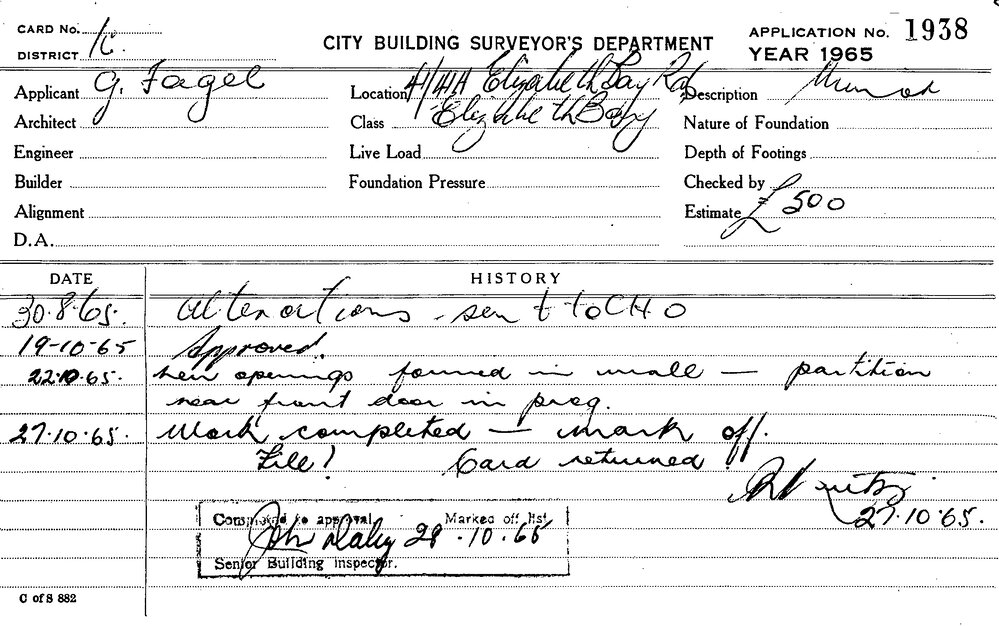 CARD No.
DISTRICT
CITY BUILDING SURVEYOR'S DEPARTMENT
APPLICATION No. 1938
YEAR 1965
Applicant G. Fagel
Location Elizabeth Bay Rd
Description
Architect
Class Elizabeth Bay
Nature of Foundation
Engineer
Live Load
Depth of Footings
Builder
Foundation Pressure
Checked by
Alignment
Estimate £500
D.A.
DATE HISTORY
30.8.65. Alterations - sent to CHO
19-10-65 Approved.
22.10.65. new openings formed in wall — partition
near front door in prog.
27.10.65. Work completed — mark off.
File! Card returned!
27.10.65.
Completed to approval. Marked off list
John Daley 28.10.65
Senior Building Inspector.
C of S 882